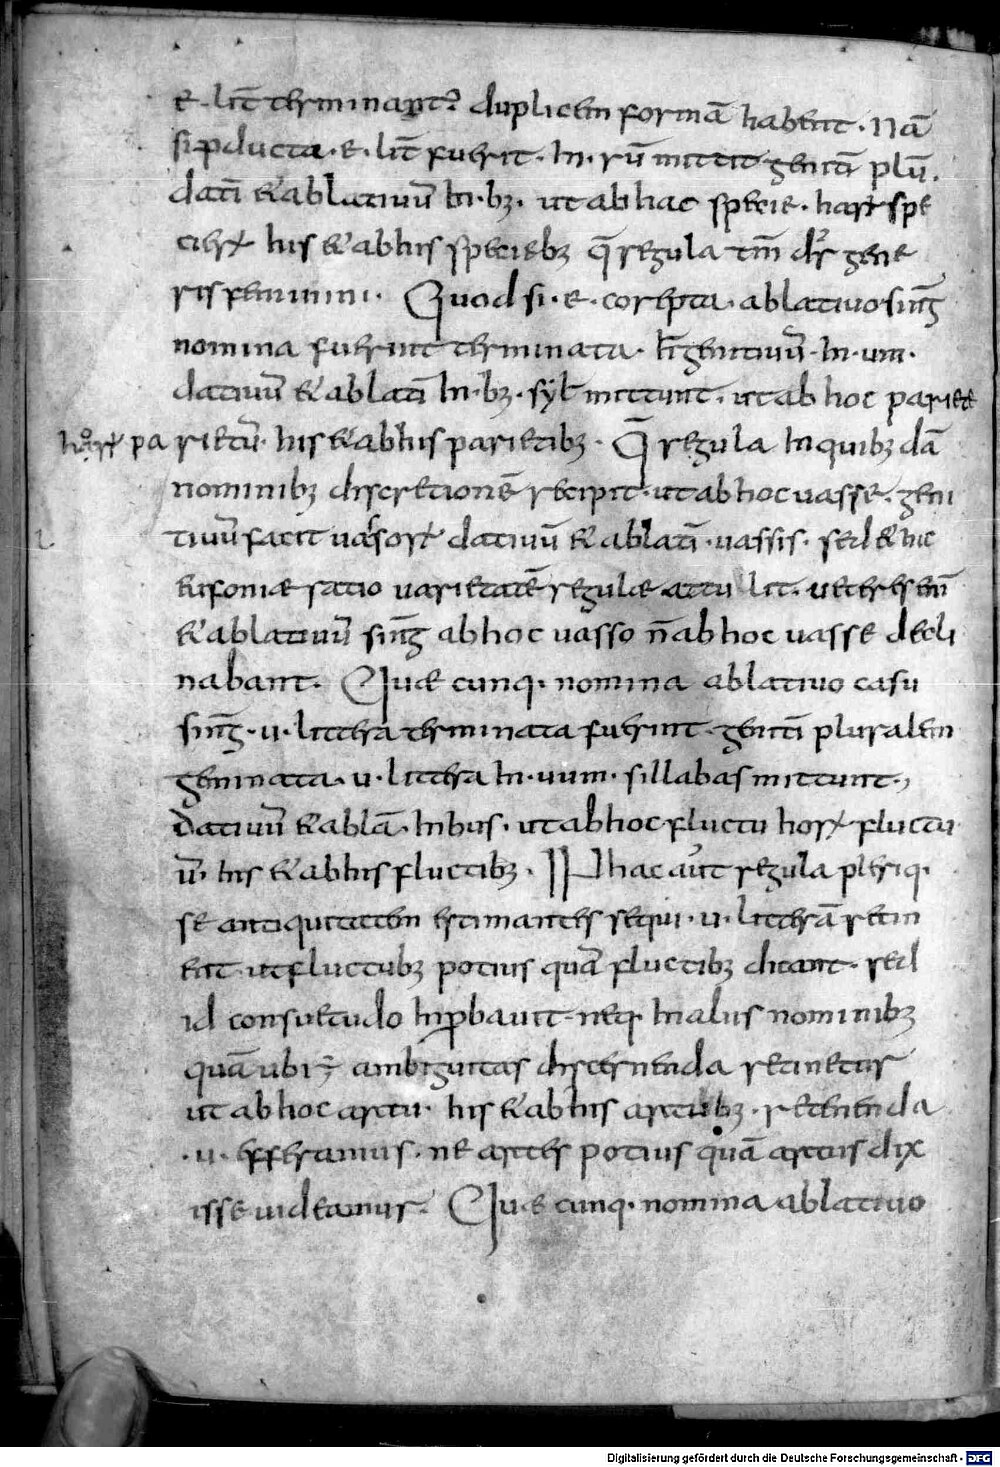 e· lit̄ terminant᷑ duplicem formā habent· Nā
si ꝓducta· e· lit̄ fuerit· In· rū mittit geniti̅ plū·
dati̅ & ablatiuū In· bꝫ· ut ab hac specie· harꝝ spe
cierꝝ his & ab his speciebꝫ q̄ regula tm̄ dr̄ gene
ris feminini· Quod si· e· corepta· ablatiuo sing̅
nomina fuerint terminata· h̄ genitiuū· In· um·
datiuū & ablati̅ In· bꝫ· syl̄ mittunt· ut ab hoc pariete
horꝝ parietū· his & ab his parietibꝫ· Q̄ regula In quibꝫdā
nominibꝫ discretionē recipit· ut ab hoc uasse· geni
tiuū facit uasorꝝ datiuū & ablati̅· uassis· sed & hic
eufoniae ratio uarietatē regulae attulit· ueteres en̄
& ablatiuū sing̅ ab hoc uasso n̄ ab hoc uasse decli
nabant· Quae cunq· nomina ablatiuo casu
sing̅· u· littera terminata fuerint· geniti̅ pluralem
geminata· u· littera In· uum· sillabas mittunt·,
datiuū & ablā· In bus· ut ab hoc fluctu horꝝ fluctu
ū· his & ab his fluctibꝫ· IN hac aut̄ regula pleriq·
se antiquitatem estimantes sequi· u· litterā retin
ent· ut fluctubꝫ potius quā fluctibꝫ dicant· sed
id consuetudo Inꝓbauit· neq· In aliis nominibꝫ
quā ubi ÷ ambiguitas discernenda retinetur
ut ab hoc artu· his & ab his artubꝫ· retenenda
·u· efferamus· ne artes potius quā artus dix
isse uideamur· Quae cunq· nomina ablatiuo
Digitalisierung gefördert durch die Deutsche Forschungsgemeinschaft - DFG